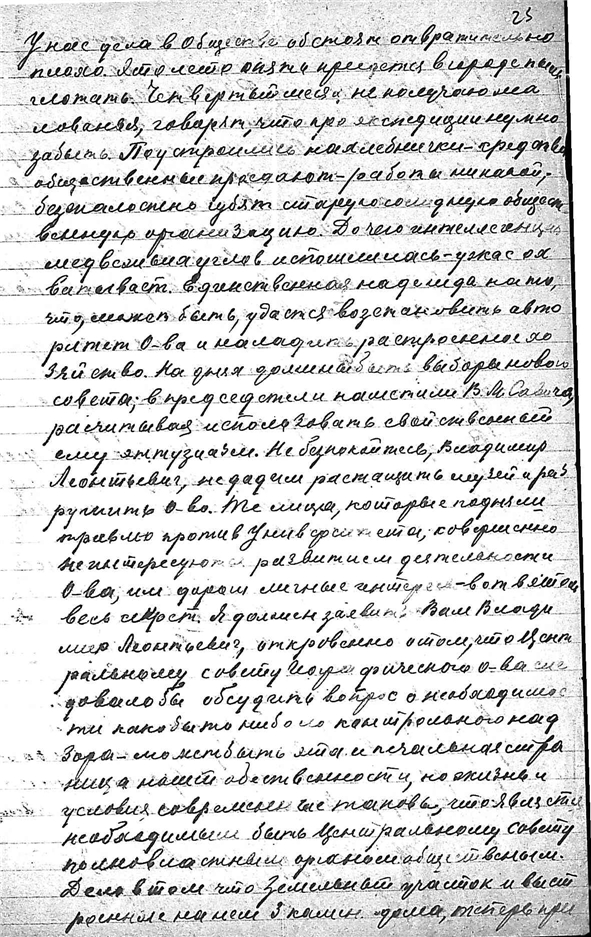 25
У нас дела в Обществе обстоят отвратительно
плохо. Это лето опять придется в городе пыль
глотать. Четвертый месяц не получаю жа
лованья, говорят, что про экспедиции нужно
забыть. Поустроились нахлебнички - средства
общественные проедают - работы никакой, -
безжалостно губят старую солидную общест
венную организацию. До чего интеллигенция
медвежьих углов испошлилась - ужас ох
ватывает. Единственная надежда на то,
что, может быть, удастся возстановить авто
ритет О-ва и наладить растроенное хо
зяйство. На днях должны быть выборы нового
совета; в председатели наметили В.М. Савича,
расчитывая использовать свойственный
ему энтузиазм. Не безпокойтесь, Владимир
Леонтьевич, не дадим растащить музей и раз
рушить О-во. Те лица, которые подняли
травлю против Университета, совершенно
не интересуются развитием деятельности
О-ва, им дороги личные интересы - вот в этом
весь секрет. Я должен заявить Вам Влади
мир Леонтьевич, откровенно о том, что Цент
ральному совету Географического о-ва сле
довало бы обсудить вопрос о необходимос
ти какого бы то нибыло контрольного над
зора - может быть эта и печальная стра
ница нашей общественности, но жизнь и
условия современные таковы, что является
необходимым быть Центральному Совету
полновластным органом общественным.
Дело в том что земельный участок и выст
роенные на нем 3 камен. дома, теперь при